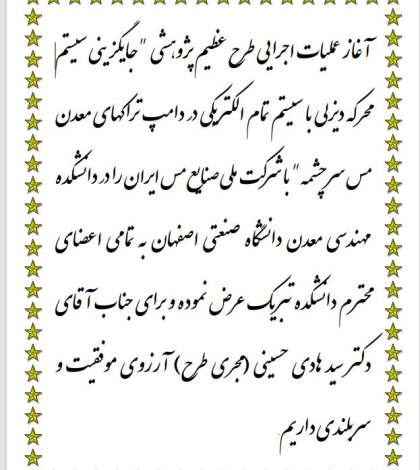 آغاز عملیات اجرایی طرح عظیم پژوهشی "جایگزینی سیستم
محرکه دیزلی با سیستم تمام الکتریکی در دامپ تراکهای معدن
مس سرچشمه" با شرکت ملی صنایع مس ایران را در دانشکده
مهندسی معدن دانشگاه صنعتی اصفهان به تمامی اعضای
محترم دانشکده تبریک عرض نموده و برای جناب آقای
دکتر سید هادی حسینی (مجری طرح) آرزوی موفقیت و
سربلندی داریم